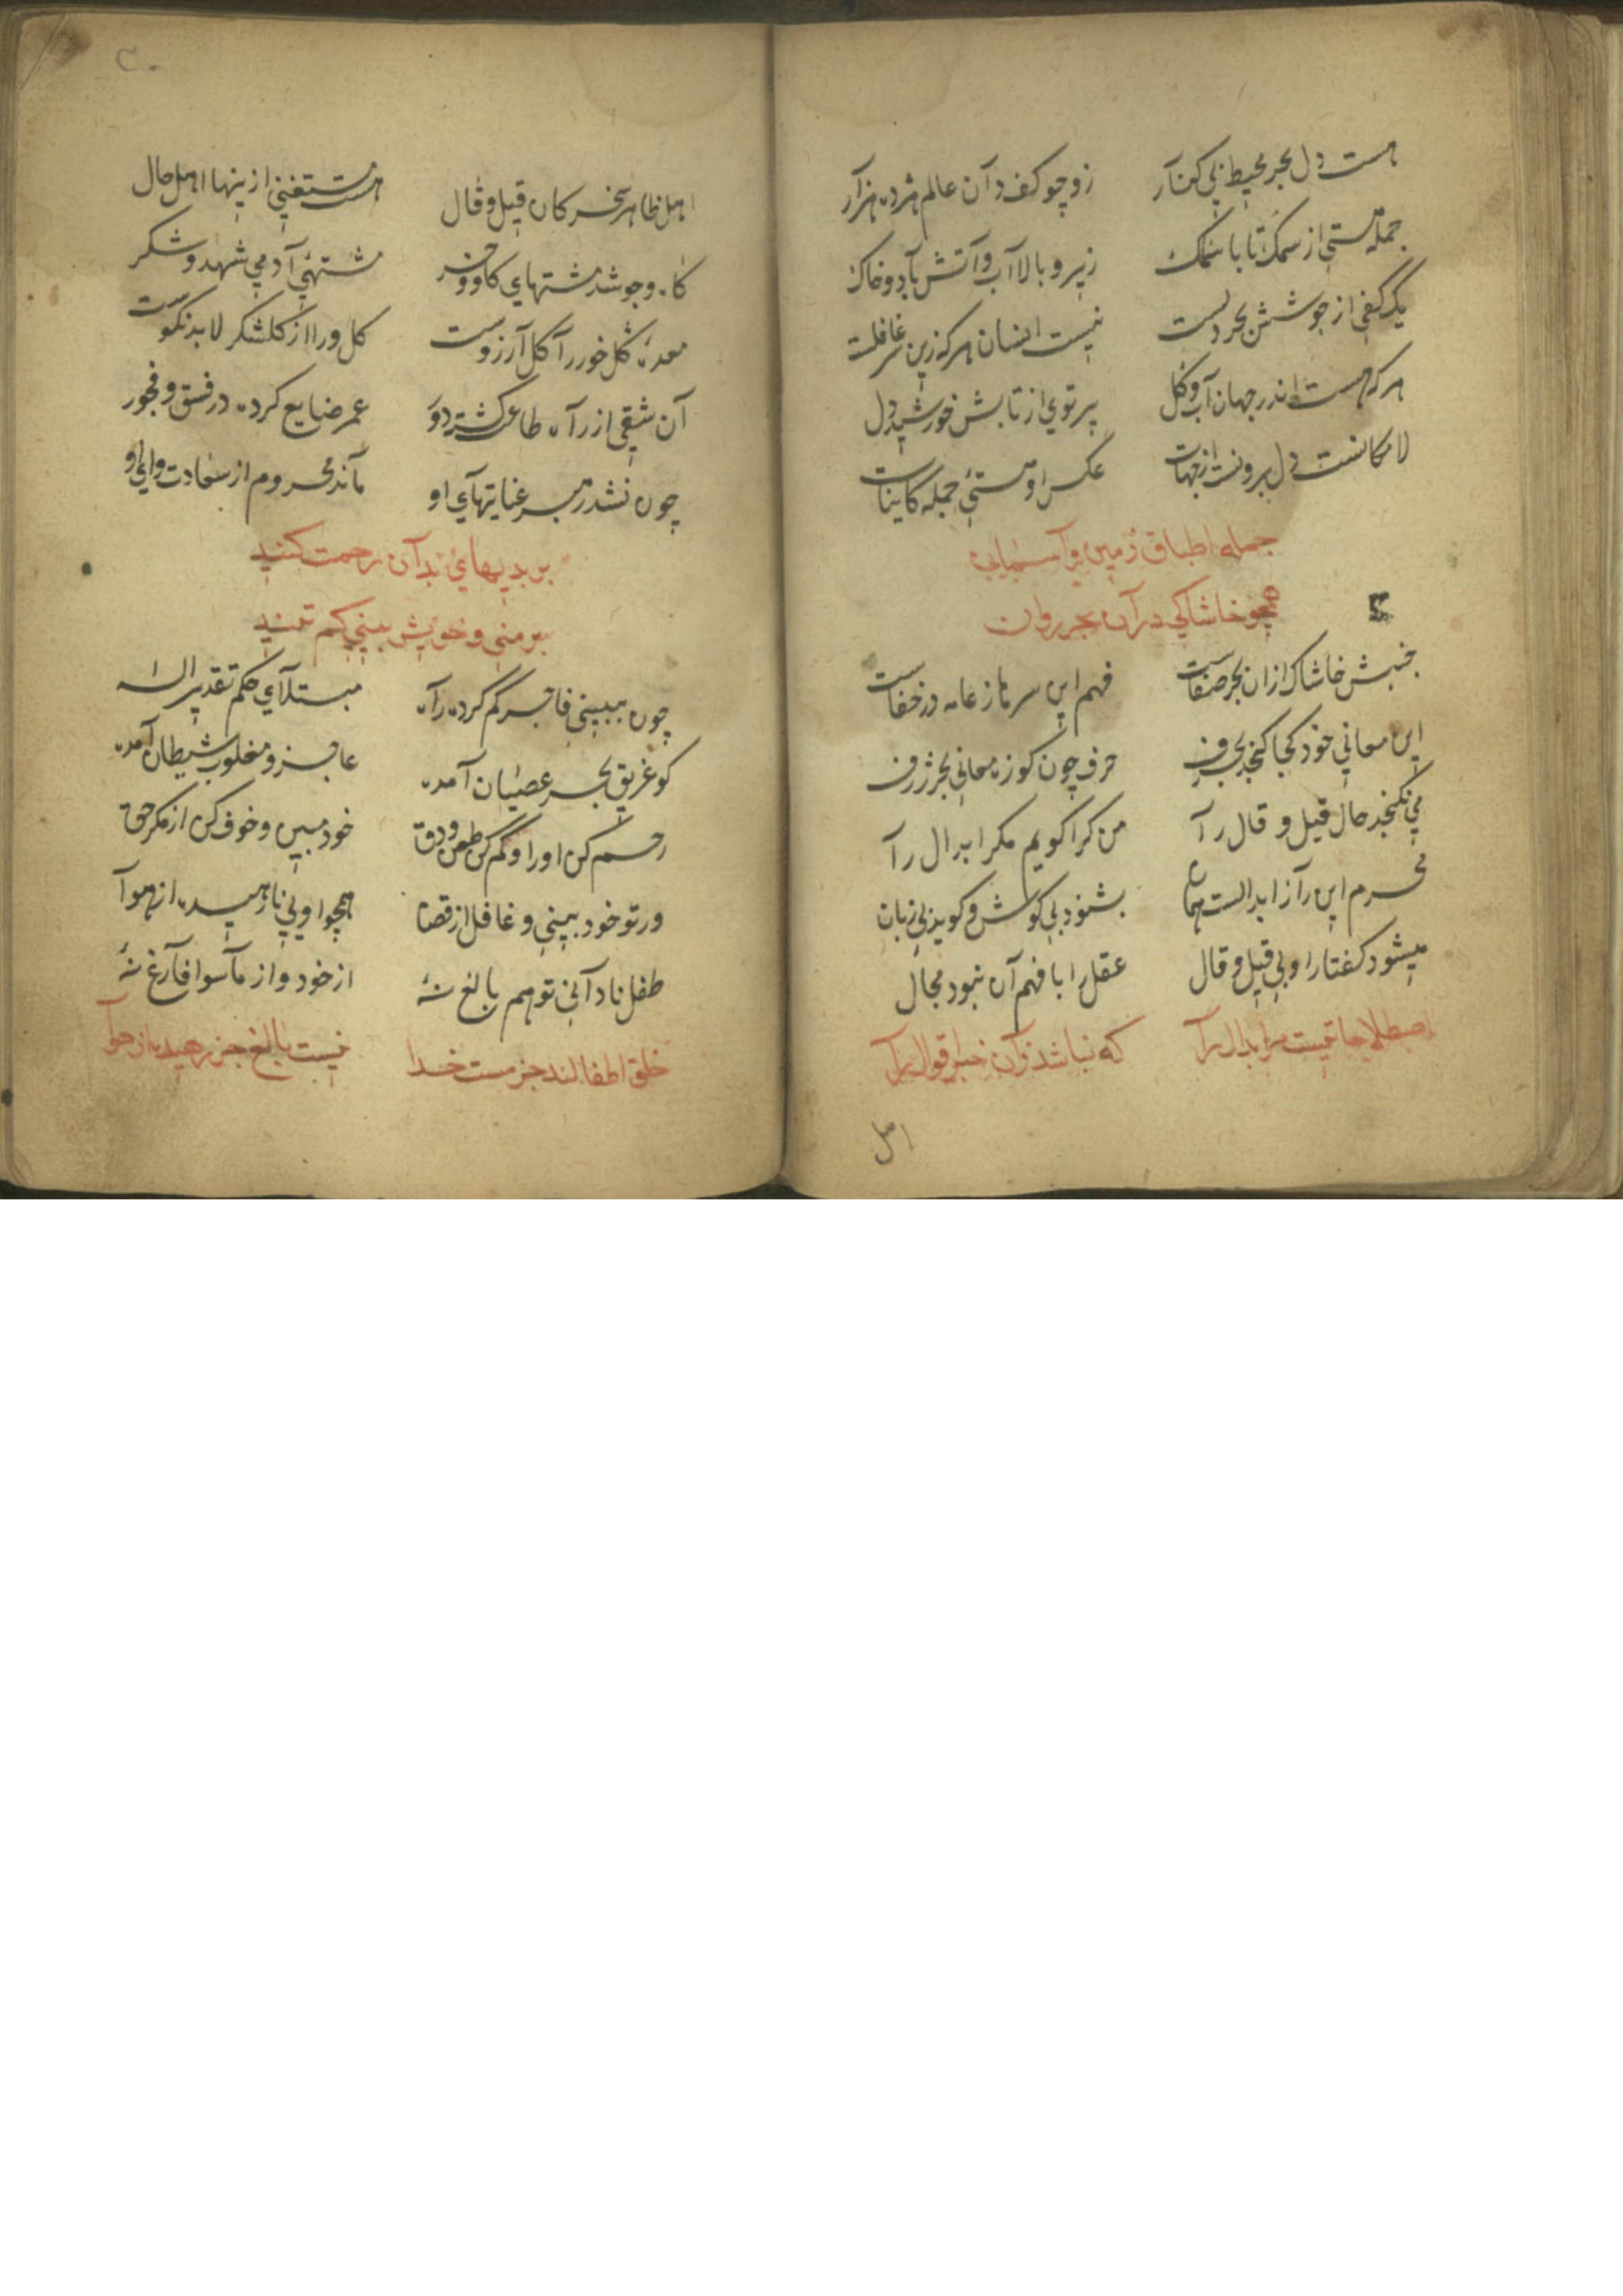 هست دل بحر محیط بی کنار زو چو کف دان عالم هژده هزار
جمله هستی از سمک تا با سماک زیر و بالا آب و آتش باد و خاک
یک کفی از جوشش بحر دلست نیست انسان هر که زین سر غافلست
هر که هست اندر جهان آب و گل پرتوی از تابش خورشید دل
لا مکانست دل برونست از جهات عکس او هستی جمله کاینات
جمله اطباق زمین و آسمان
همچو خاشاکی در آن بحر روان
جنبش خاشاک ازان بحر صفاست فهم این سر باز عامه در خفاست
این معانی خود کجا کنجد بحرف حرف چون کوزه معانی بحر ژرف
می نکنجد حال قیل و قال را من کرا کویم مکر ابدال را
محرم این راز ابدالست همان بشنود بی کوش و کوید بی زبان
میشود کفتار او بی قیل و قال عقل را با فهم آن نبود مجال
اصطلاحاتیست مر ابدال را که نباشد زان خبر اقوال را
اهل
۳۰
اهل ظاهر مسخر کان قیل و قال هست مستغنی ازینها اهل حال
کاه و جو شد مشتهای کاو و خر مشتهی آدمی شهد و شکر
معده کل خور را کل آرزوست کل ورا از کلشکر لابد نکوست
آن شقی از راه طاعت کشته دور عمر ضایع کرده در فسق و فجور
چون نشد رهبر عنایتهای او ماند محروم از سعادت وای او
بر بدیهای بدان رحمت کنید
بر منی و خویش بینی کم تنید
چون ببینی فاجر کم کرده راه مبتلای حکم تقدیر اله
کو غریق بحر عصیان آمده عاجز و مغلوب شیطان آمده
رحم کن او را و کم کن طعن و دق خود مبین و خوف کن از مکر حق
ور تو خود بینی و غافل از قضا همچو اویی نارهیده از هوا
طفل نادانی تو هم بالغ نهٔ از خود و از ماسوا فارغ نهٔ
خلق اطفالند جز مست خدا نیست بالغ جز رهیده از هوا